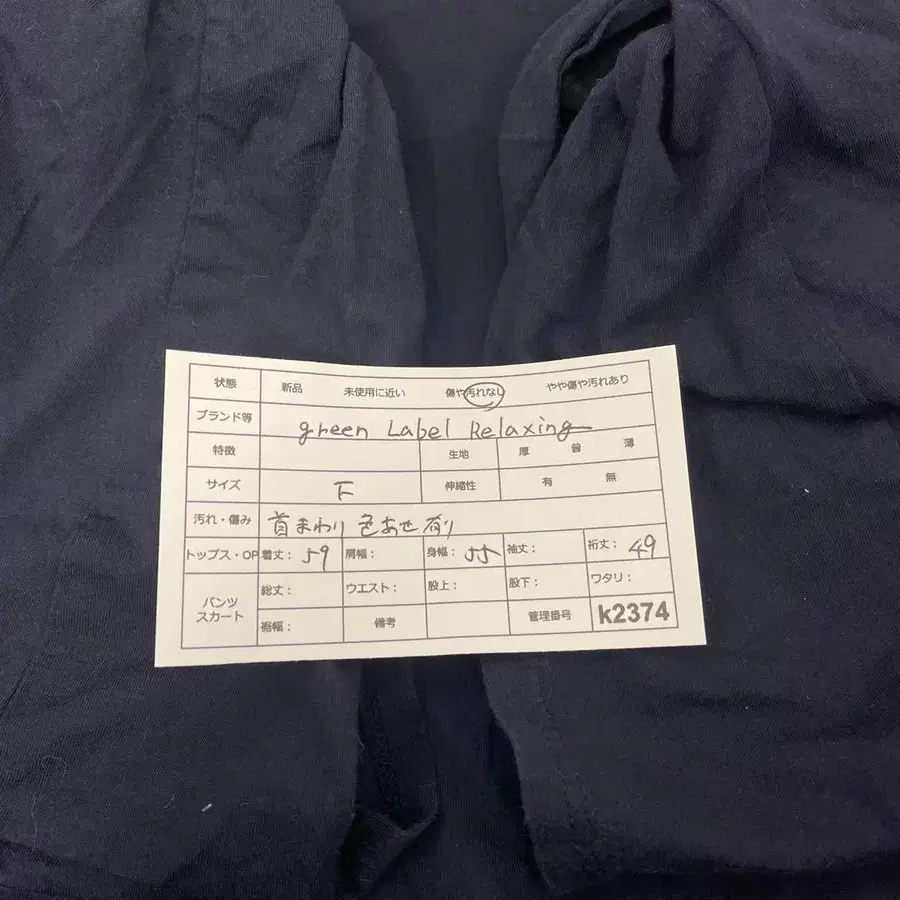 状態 新品 未使用に近い 傷や汚れなし やや傷や汚れあり
ブランド等 green Label Relaxing
特徴 生地 厚 普 薄
サイズ F 伸縮性 有 無
汚れ・傷み 首まわり 色あせ 有り
トップス・OP 着丈: 59 肩幅: 身幅: 55 袖丈: 裄丈: 49
パンツ スカート 総丈: ウエスト: 股上: 股下: ワタリ:
裾幅: 備考 管理番号 k2374